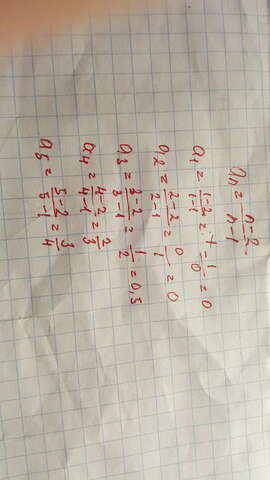 aₙ = n-2/n-1
a₁ = 1-2/1-1 = -1/0 = 0
a₂ = 2-2/2-1 = 0/1 = 0
a₃ = 3-2/3-1 = 1/2 = 0,5
a₄ = 4-2/4-1 = 2/3
a₅ = 5-2/5-1 = 3/4